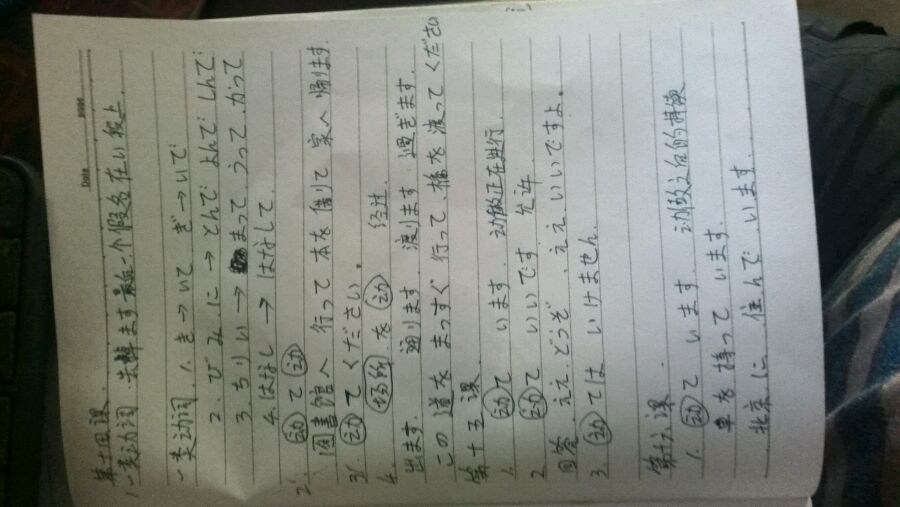 Date
Page
第十四课
1. 一类动词 去掉ます最后一个假名在い段上.
一类动词 1. き→いて ぎ→いで
2. び み に → とんで よんで しんで
3. ち り い → まって うって かって
4. はなし → はなして
2. 动て动
图書館へ 行って 本を 借りて 家へ 帰ります.
3. 动てください。
4. 场所 を 动 经过
出ます. 通ります 渡ります 過ぎます.
この 道を まっすぐ 行って、橋を 渡って ください
第十五 课
1. 动て います 动做正在进行
2. 动て いいです 允许.
回答 ええ、どうぞ、ええ いいですよ。
3. 动ては いけません.
第十六课.
1. 动て います. 动做之后的持续
車を 持って います.
北京に 住んで います.